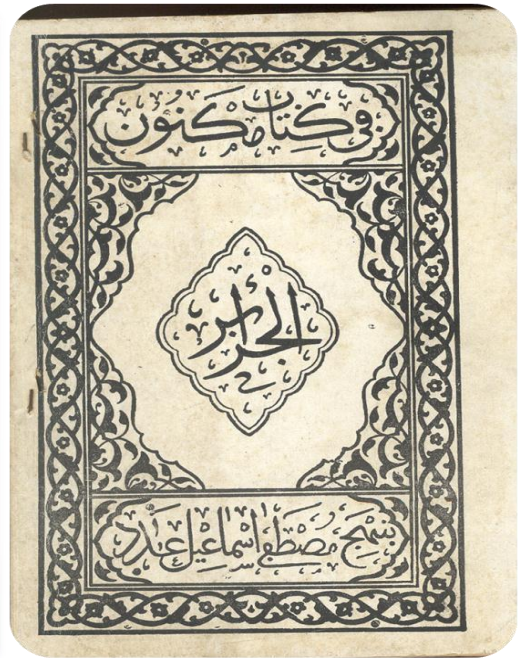 في كتاب مكنون
الجزائر
مصطفى اسماعيل